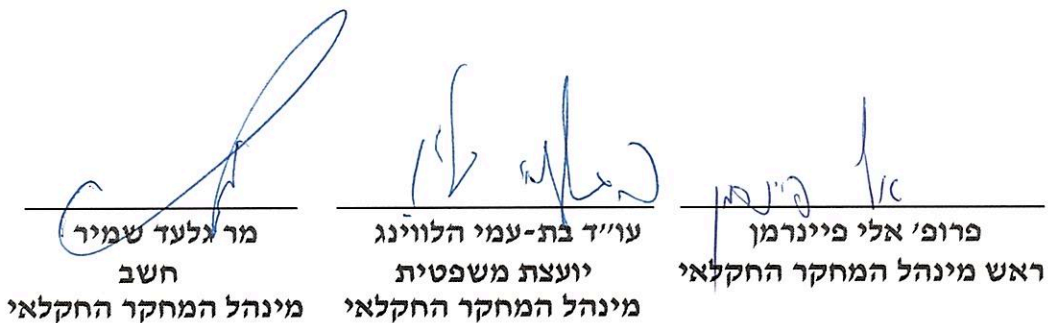 פרופ׳ אלי פיינרמן
ראש מינהל המחקר החקלאי
עו״ד בת-עמי הלווינג
יועצת משפטית
מינהל המחקר החקלאי
מר גלעד שמיר
חשב
מינהל המחקר החקלאי